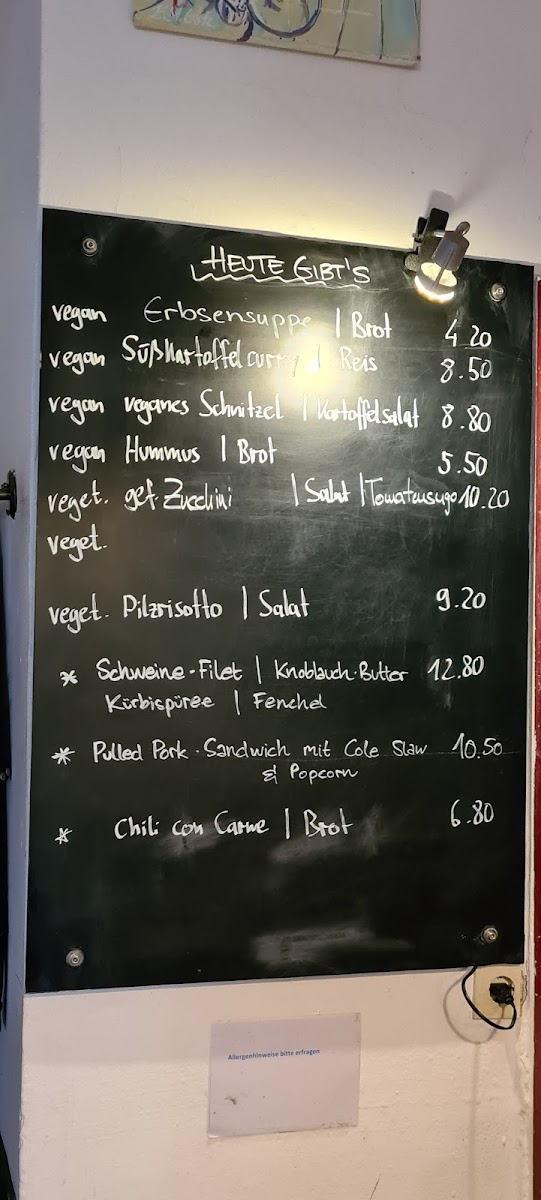 HEUTE GIBT'S
vegan Erbsensuppe | Brot 4.20
vegan Süßkartoffelcurry | Reis 8.50
vegan veganes Schnitzel | Kartoffelsalat 8.80
vegan Hummus | Brot 5.50
veget. gef. Zucchini | Salat | Tomatensugo 10.20
veget.
veget. Pilzrisotto | Salat 9.20
* Schweine-Filet | Knoblauch-Butter 12.80
Kürbispüree | Fenchel
* Pulled Pork-Sandwich mit Cole Slaw 10.50
& Popcorn
* Chili con Carne | Brot 6.80
Allergenhinweise bitte erfragen